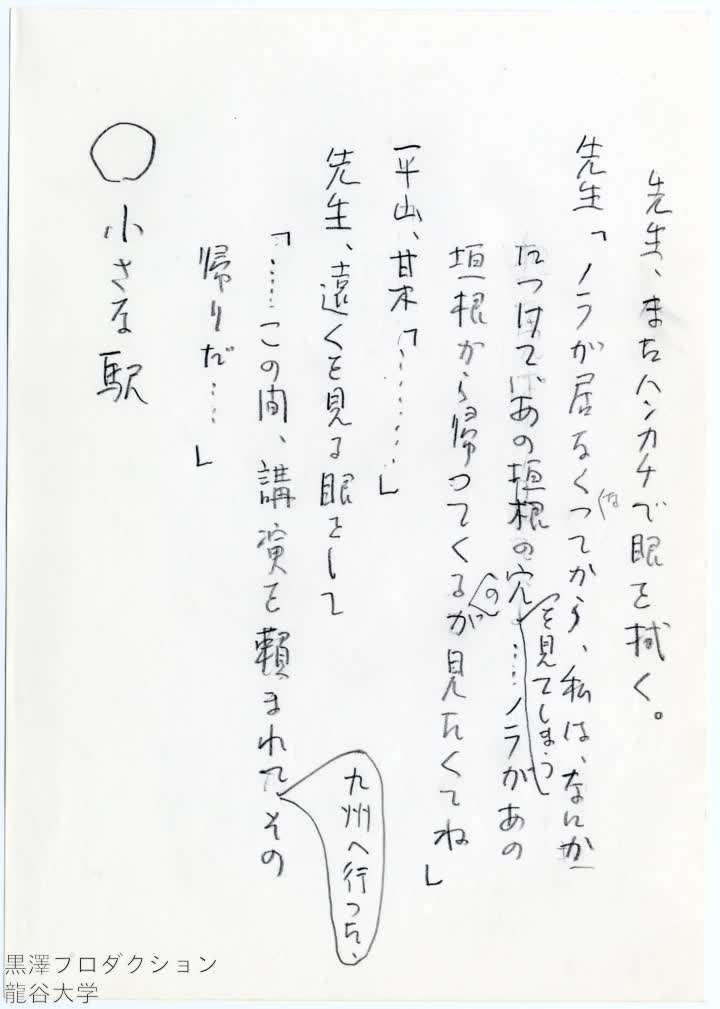 先生、またハンカチで眼を拭く。
先生「ノラが居なくなつてから、私は、なにか
につけて、あの垣根の穴を見てしまう……ノラがあの
垣根から帰つてくるのが見たくてね」
平山、甘木「………」
先生、遠くを見る眼をして
「……この間、講演を頼まれて九州へ行つた、その
帰りだ……」
○小さな駅
黒澤プロダクション
龍谷大学